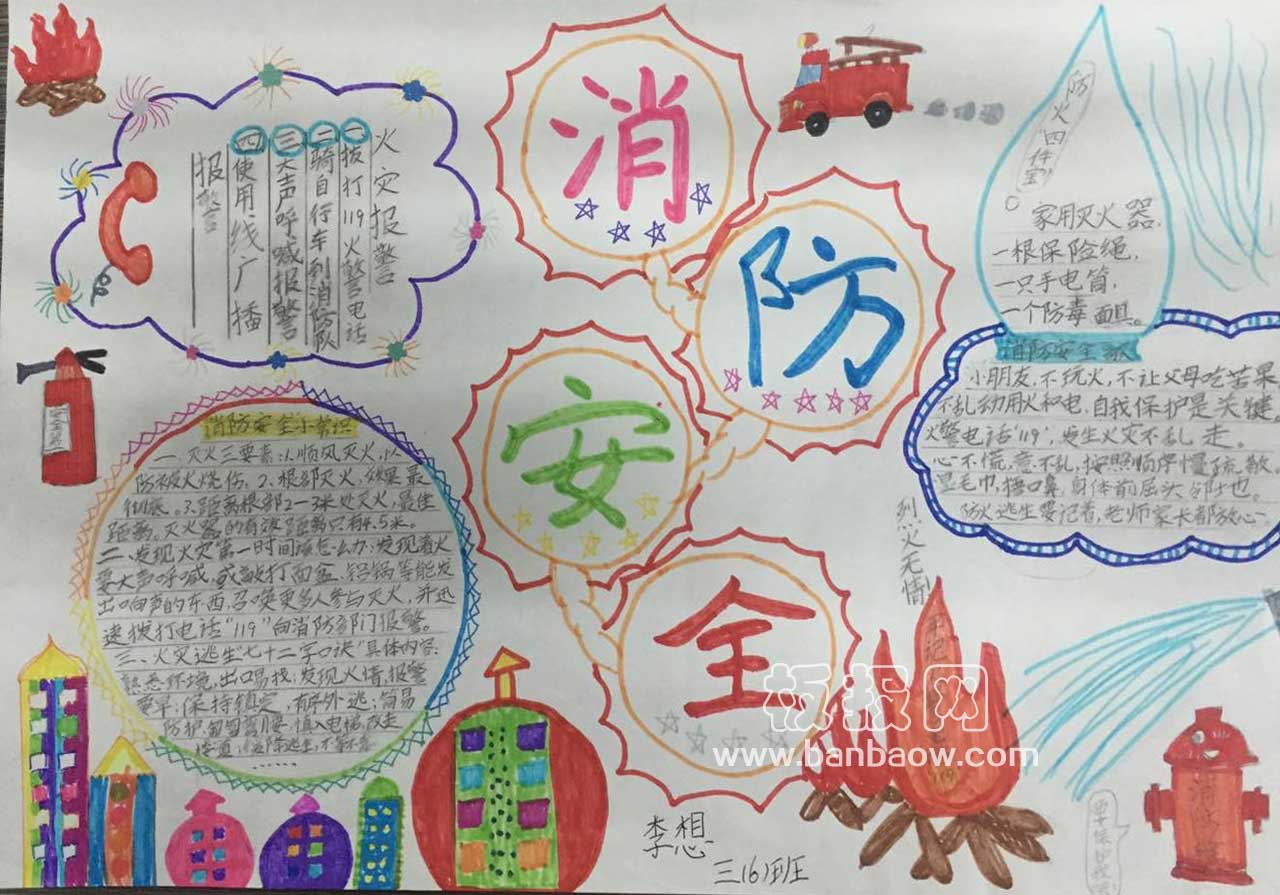 消
防
安
全
火灾报警
一拨打119火警电话
二骑自行车到消防队
三大声呼喊报警
四使用线广播
报警
防火"四件宝"
家用灭火器,
一根保险绳,
一只手电筒,
一个防毒面具。
消防安全歌
小朋友,不玩火,不让父母吃苦果
不乱动用火和电,自我保护是关键
火警电话'119',发生火灾不乱走。
心不慌,意不乱,按照顺序慢疏散
湿毛巾,捂口鼻,身体前屈头邻地。
防火逃生要记着,老师家长都放心
消防安全小常识
一、灭火三要素:1.顺风灭火,以
防被火烧伤。2.根部灭火,效果最
彻底。3.距离根部2-3米处灭火,最佳
距离。灭火器的有效距离只有4.5米。
二、发现火灾第一时间该怎么办:发现着火
要大声呼喊,或敲打面盆、铝锅等能发
出响声的东西,召唤更多人参与灭火,并迅
速拨打电话"119"向消防部门报警。
三、火灾逃生"七十二字口诀"具体内容:
熟悉环境,出口易找;发现火情,报警
要早;保持镇定,有序外逃;简易
防护,匍匐弯腰;慎入电梯,改走
……
烈火无情!
李想
三16班
板报网
www.banbaow.com